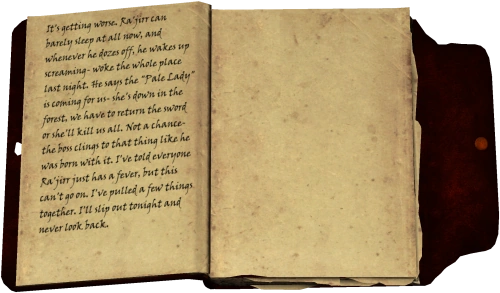 It's getting worse. Ra'jirr can
barely sleep at all now, and
whenever he dozes off, he wakes up
screaming- woke the whole place
last night. He says the "Pale Lady"
is coming for us- she's down in the
forest, we have to return the sword
or she'll kill us all. Not a chance-
the boss clings to that thing like he
was born with it. I've told everyone
Ra'jirr just has a fever, but this
can't go on. I've pulled a few things
together. I'll slip out tonight and
never look back.